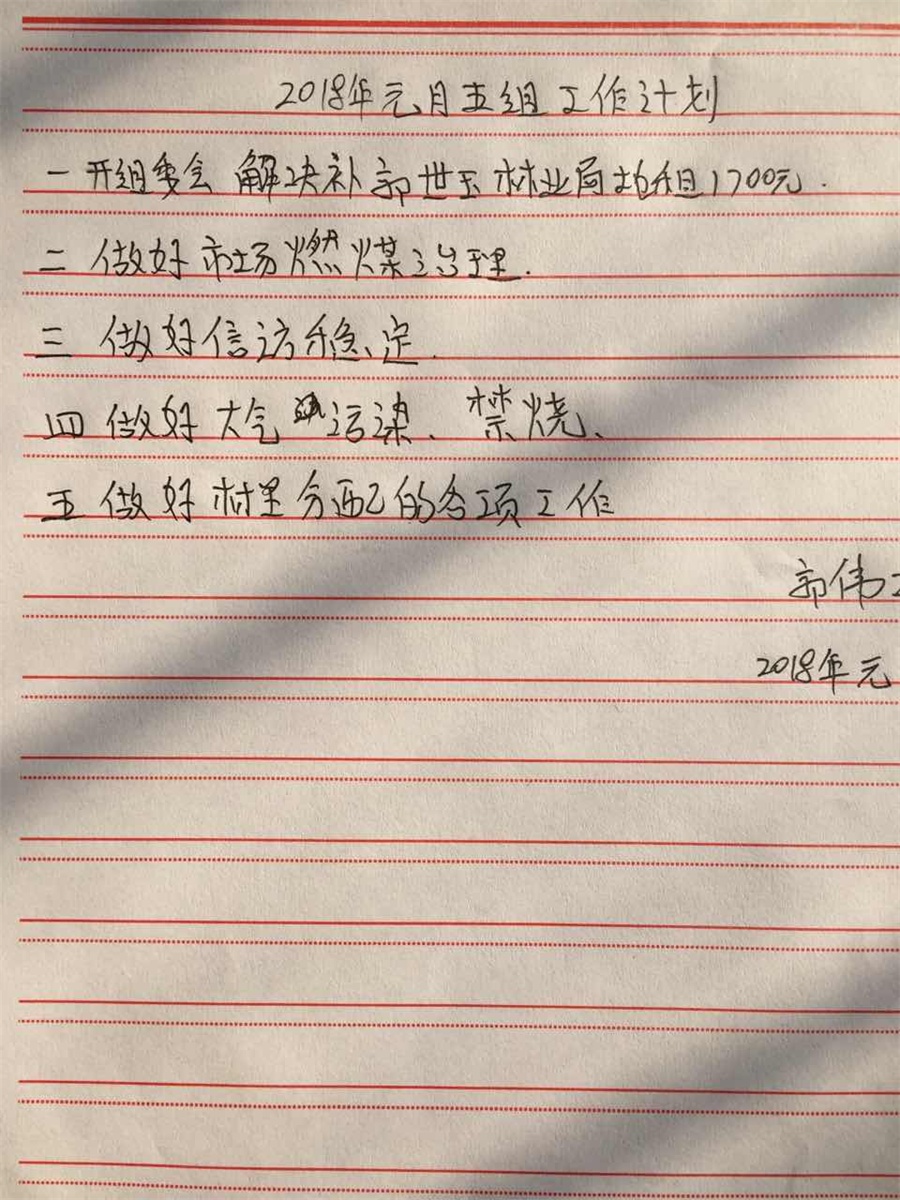 2018年元月五组工作计划
一 开组委会 解决补郭世玉林业局地租1700元.
二 做好市场燃煤治理.
三 做好信访稳定.
四 做好大气污染、禁烧、
五 做好村里分配的各项工作
郭伟
2018年元